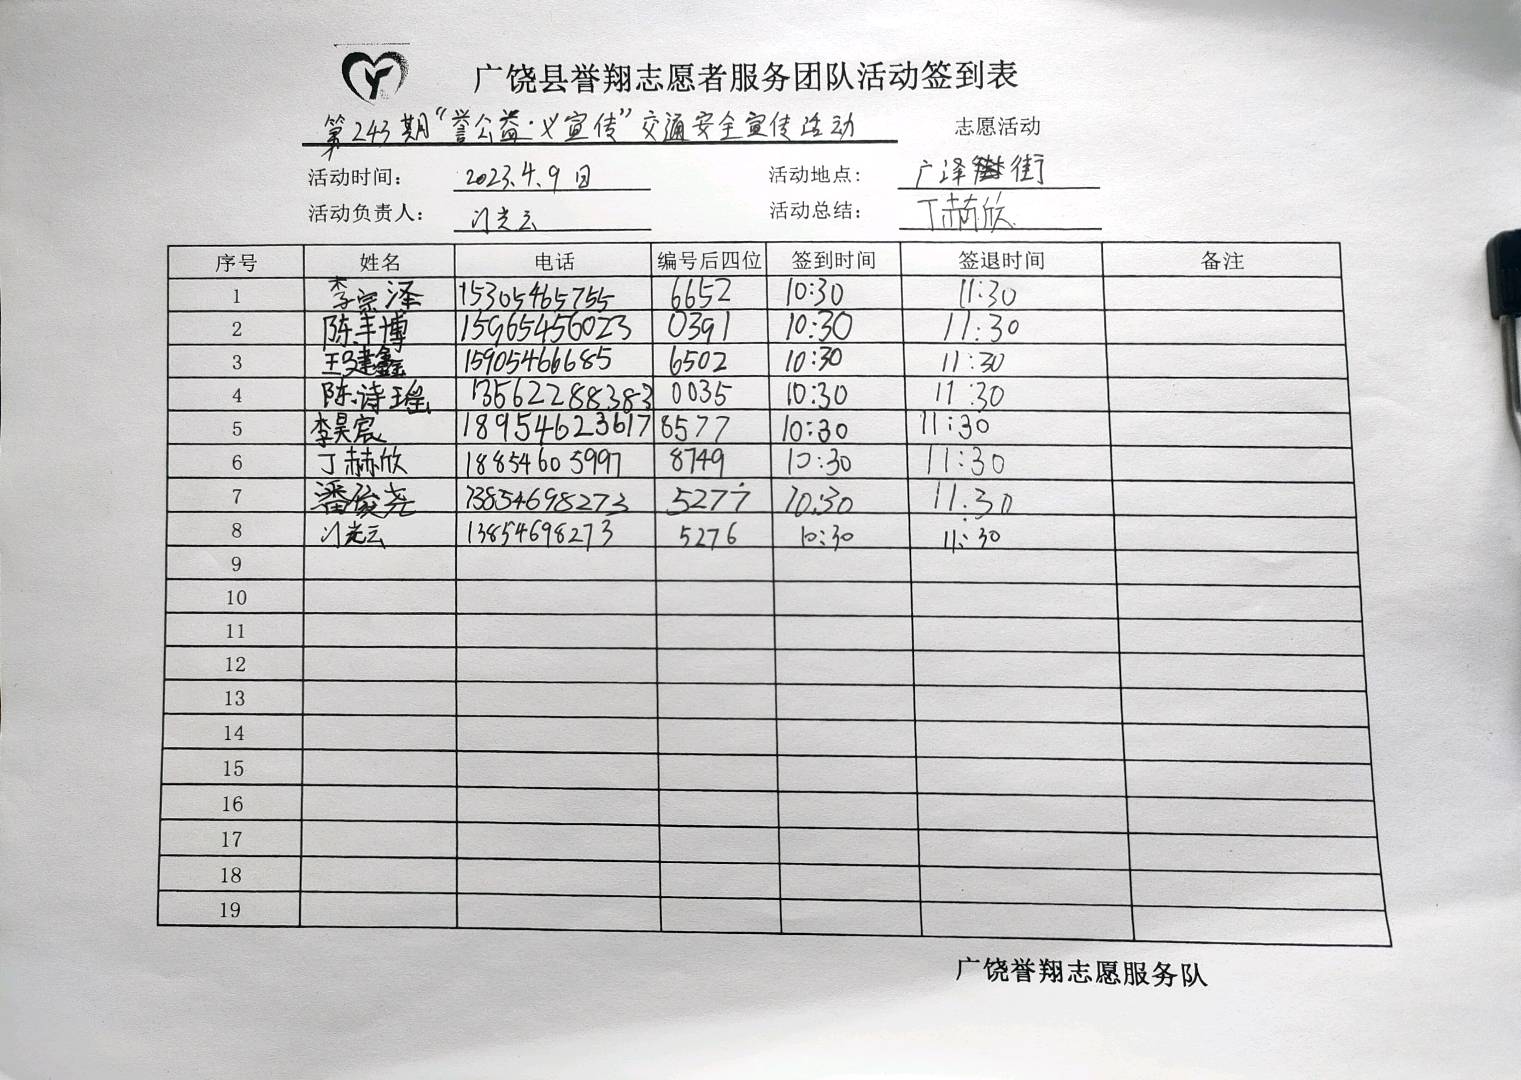 广饶县誉翔志愿者服务团队活动签到表
第243期“誉公益·义宣传”交通安全宣传活动 志愿活动
活动时间： 2023.4.9日 活动地点： 广泽街
活动负责人： 光云 活动总结： 丁赫欣
序号 姓名 电话 编号后四位 签到时间 签退时间 备注
1 李宗泽 15305465755 6652 10:30 11:30
2 陈丰博 15965456023 0391 10:30 11:30
3 王建鑫 15905466685 6502 10:30 11:30
4 陈诗瑶 13562288383 0035 10:30 11:30
5 李昊宸 18954623617 8577 10:30 11:30
6 丁赫欣 18854605997 8749 10:30 11:30
7 潘俊尧 13854698273 5277 10:30 11:30
8 光云 13854698273 5276 10:30 11:30
9
10
11
12
13
14
15
16
17
18
19
广饶誉翔志愿服务队